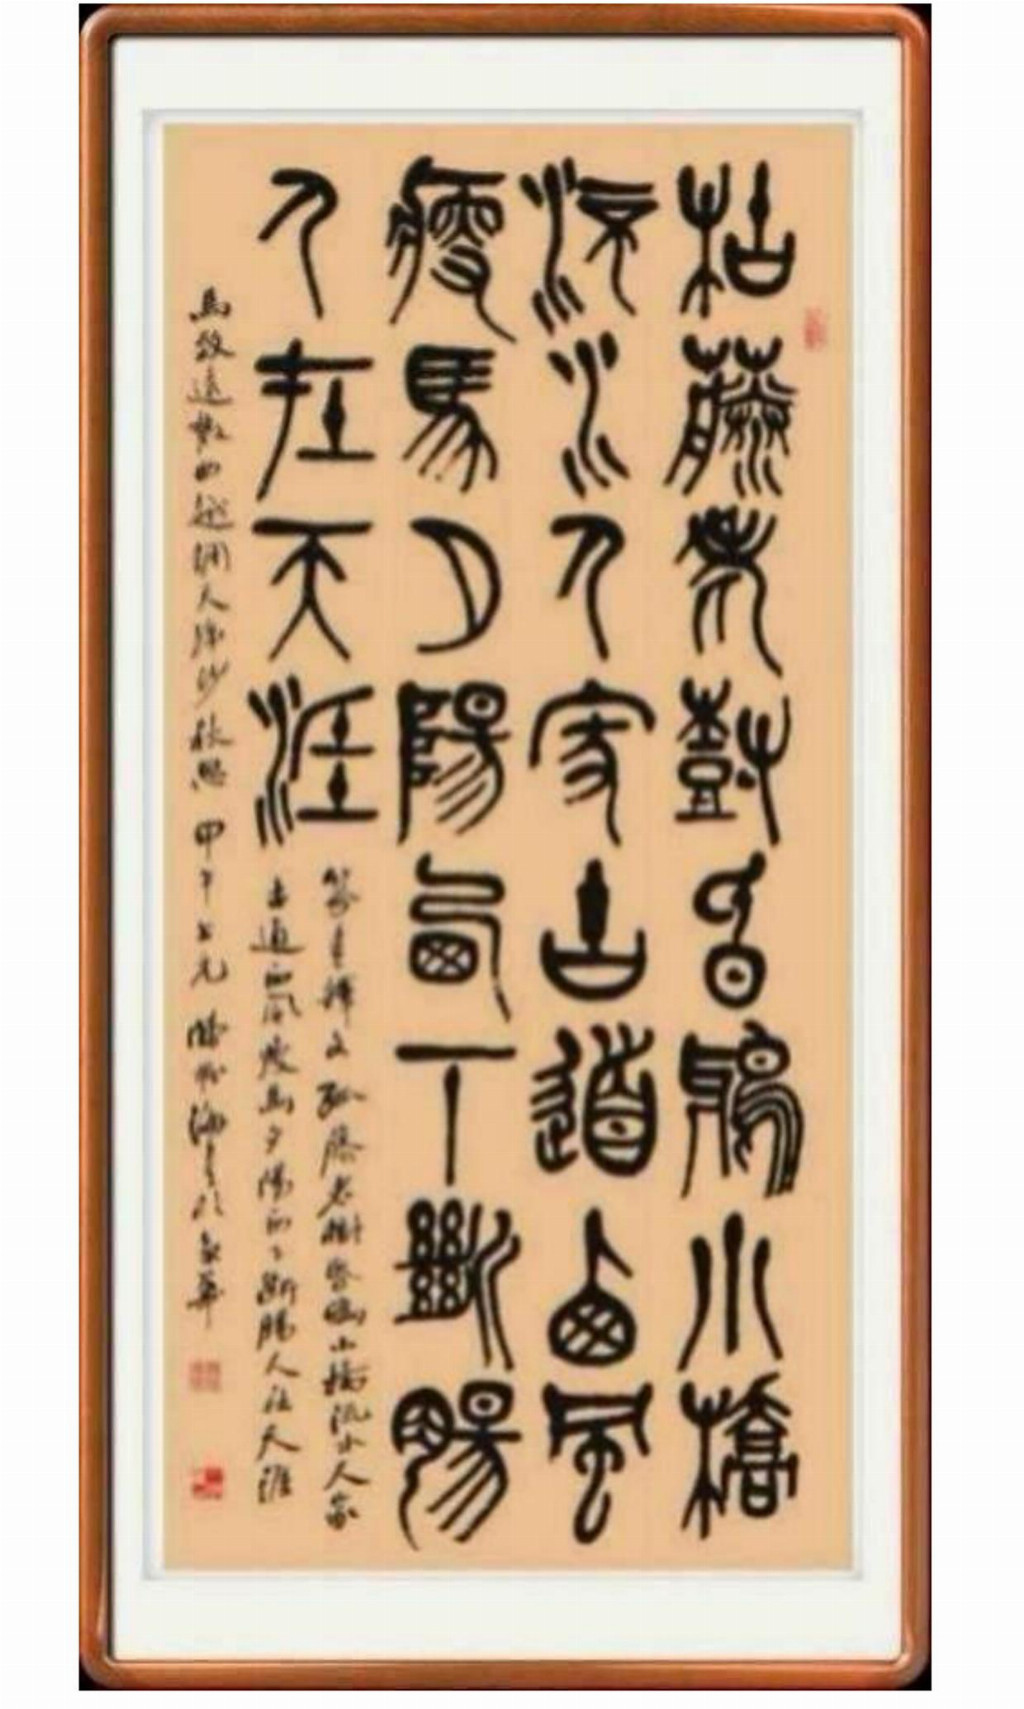 枯藤老樹昏鴉小橋
流水人家古道西風
瘦馬夕陽西下斷腸
人在天涯
篆書釋文 枯藤老樹昏鴉小橋流水人家
古道西風瘦馬夕陽西下斷腸人在天涯
馬致遠散曲越調天淨沙秋思 甲午上元 書於京華